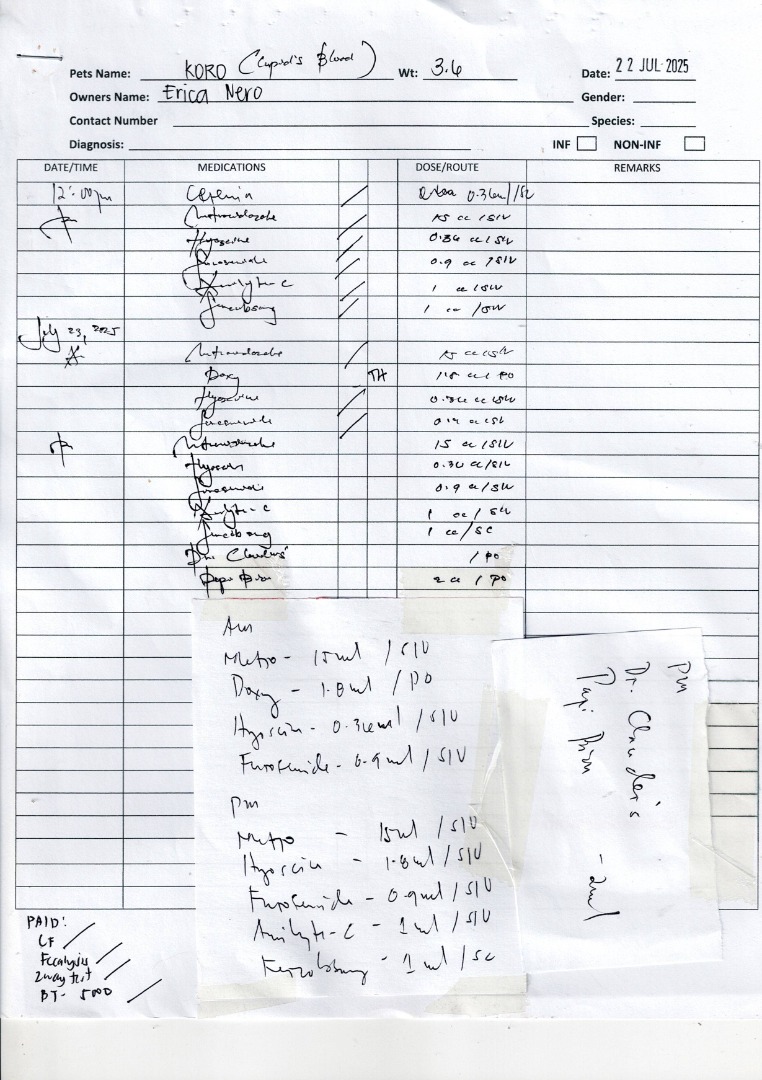 Pets Name: KORO (Cupid's Blood) Wt: 3.6 Date: 22 JUL 2025
Owners Name: Erica Nero Gender:
Contact Number Species:
Diagnosis: INF NON-INF
DATE/TIME MEDICATIONS DOSE/ROUTE REMARKS
12:00pm Cerenia 0.36ml/SC
pm Metronidazole 15 cc /SIV
Hyoscine 0.36 cc/SIV
Furosemide 0.9 cc /SIV
1 cc /SIV
1 cc /SIV
July 23, 2025
Metronidazole 15 cc /SIV
Doxy TH 1.8 cc / PO
Hyoscine 0.36 cc /SIV
Furosemide 0.9 cc /SIV
pm Metronidazole 15 cc /SIV
Hyoscin 0.36 cc/SIV
Furosemide 0.9 cc/SIV
1 cc / SIV
1 cc / SC
Dr. Clauders / PO
Papi 2 cc / PO
Am
Metro - 15ml /SIV
Doxy - 1.8ml / PO
Hyoscin - 0.36ml /SIV
Furosemide - 0.9ml / SIV
pm
Metro - 15ml / SIV
Hyoscin - 1.8ml / SIV
Furosemide - 0.9ml / SIV
- 1ml / SIV
- 1 ml / SC
pm
Dr. Clauder's
Papi - 2ml
PAID:
CF
Fecalysis
2way test
BT - 5000